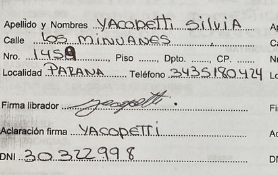 Apellido y Nombres YACOPETTI SILVIA
Calle LOS MINUANES
Nro. 1459 Piso ........ Dpto. ........ CP. ........
Localidad PARANA Teléfono 3435180424
Firma librador Yacopetti.
Aclaración firma YACOPETTI
DNI 30.322.998